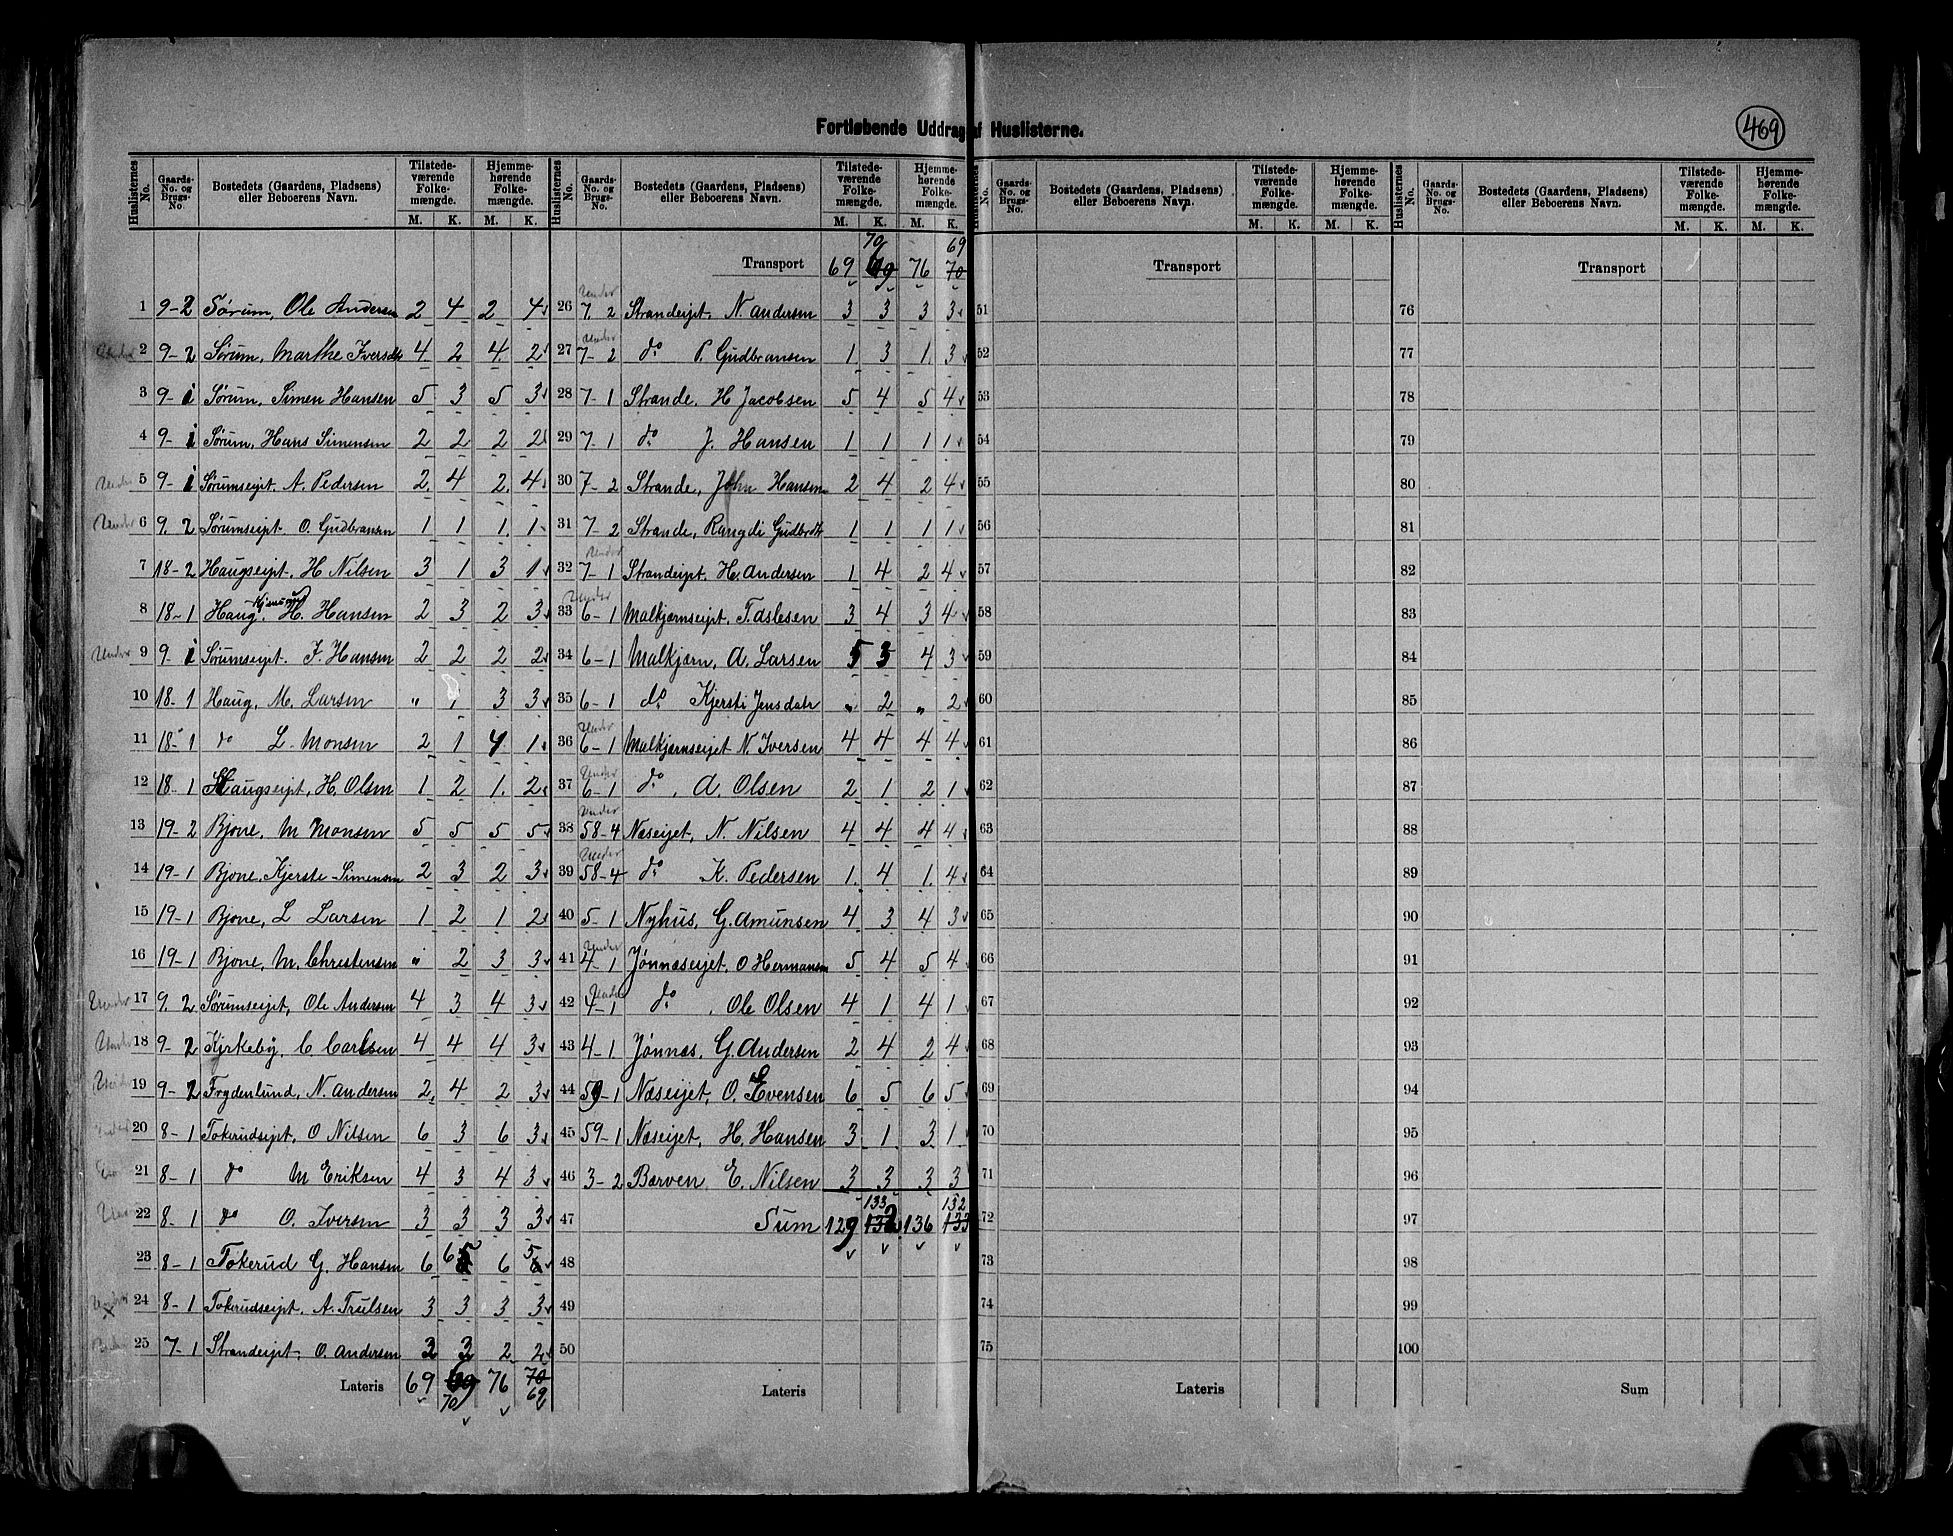 469
Fortløbende Uddrag af Huslisterne.
Huslisternes No. Gaards-No. og Brugs-No. Bostedets (Gaardens, Pladsens) eller Beboerens Navn. Tilstedeværende Folkemængde. M. K. Hjemmehørende Folkemængde. M. K.
1 9-2 Sørum, Ole Andersen 2 4 2 4
Under 2 9-2 Sørum, Marthe Iversdtr 4 2 4 2
3 9-1 Sørum, Simen Hansen 5 3 5 3
4 9-1 Sørum, Hans Simensen 2 2 2 2
Under 5 9-1 Sørumseijet, A. Pedersen 2 4 2 4
Under 6 9-2 Sørumseijet, O. Gudbransen 1 1 1 1
7 18-2 Haugseijet, H Nilsen 3 1 3 1
8 18-1 Haug, H. Hansen 2 3 2 3
Under 9 9-1 Sørumseijet, J. Hansen 2 2 2 2
10 18-1 Haug, M. Larsen " 1 3 3
11 18-1 do L. Monsen 2 1 4 1
12 18-1 Haugseijet, H. Olsen 1 2 1 2
13 19-2 Bjone, M Monsen 5 5 5 5
14 19-1 Bjone, Kjersti Simensen 2 3 2 3
15 19-1 Bjone, L Larsen 1 2 1 2
16 19-1 Bjone, M. Christensen " 2 3 3
Under 17 9-2 Sørumseijet, Ole Andersen 4 3 4 3
Under 18 9-2 Kirkeby, C Carlsen 4 4 4 3
Under 19 9-2 Frydenlund, N. Andersen 2 4 2 3
Under 20 8-1 Tokerudseijet, O Nilsen 6 3 6 3
21 8-1 do M Eriksen 4 3 4 3
Under 22 8-1 do O. Iversen 3 3 3 3
23 8-1 Tokerud G. Hansen 6 6 5 6 5 6
Under 24 8-1 Tokerudseijet, A. Trulsen 3 3 3 3
25 7-1 Strandeijet, O. Andersen 3 3 2 2
Lateris 69 69 76 70
70 69
70 69
Transport 69 69 76 70
Under 26 7-2 Strandeijet, N. Andersen 3 3 3 3
Under 27 7-2 do P. Gudbransen 1 3 1 3
28 7-1 Strande, H Jacobsen 5 4 5 4
29 7-1 do J. Hansen 1 1 1 1
30 7-2 Strande, John Hansen 2 4 2 4
31 7-2 Strande, Rangdi Gudbrdtr 1 1 1 1
Under 32 7-1 Strandeijet, H. Andersen 1 4 2 4
Under 33 6-1 Malkjærnseijet, T. Aslesen 3 4 3 4
34 6-1 Malkjærn, A. Larsen 5 3 4 3
35 6-1 do Kjersti Jensdatr " 2 " 2
Under 36 6-1 Malkjærnseijet N. Iversen 4 4 4 4
Under 37 6-1 do, A. Olsen 2 1 2 1
Under 38 58-4 Næseijet, N. Nilsen 4 4 4 4
Under 39 58-4 do K. Pedersen 1 4 1 4
40 5-1 Nyhus, G. Amunsen 4 3 4 3
Under 41 4-1 Jønnæseijet, O Hermansen 5 4 5 4
Under 42 4-1 do, Ole Olsen 4 1 4 1
43 4-1 Jønnæs, G. Andersen 2 4 2 4
44 59-1 Næseijet, O. Evensen 6 5 6 5
45 59-1 Næseijet, H. Hansen 3 1 3 1
46 3-2 Barven E. Nilsen 3 3 3 3
133 132
47 Sum 129 132 136 133
48
49
50
Lateris
Huslisternes No. Gaards-No. og Brugs-No. Bostedets (Gaardens, Pladsens) eller Beboerens Navn. Tilstedeværende Folkemængde. M. K. Hjemmehørende Folkemængde. M. K.
Transport
51
52
53
54
55
56
57
58
59
60
61
62
63
64
65
66
67
68
69
70
71
72
73
74
75
Lateris
Huslisternes No. Gaards-No. og Brugs-No. Bostedets (Gaardens, Pladsens) eller Beboerens Navn. Tilstedeværende Folkemængde. M. K. Hjemmehørende Folkemængde. M. K.
Transport
76
77
78
79
80
81
82
83
84
85
86
87
88
89
90
91
92
93
94
95
96
97
98
99
100
Sum